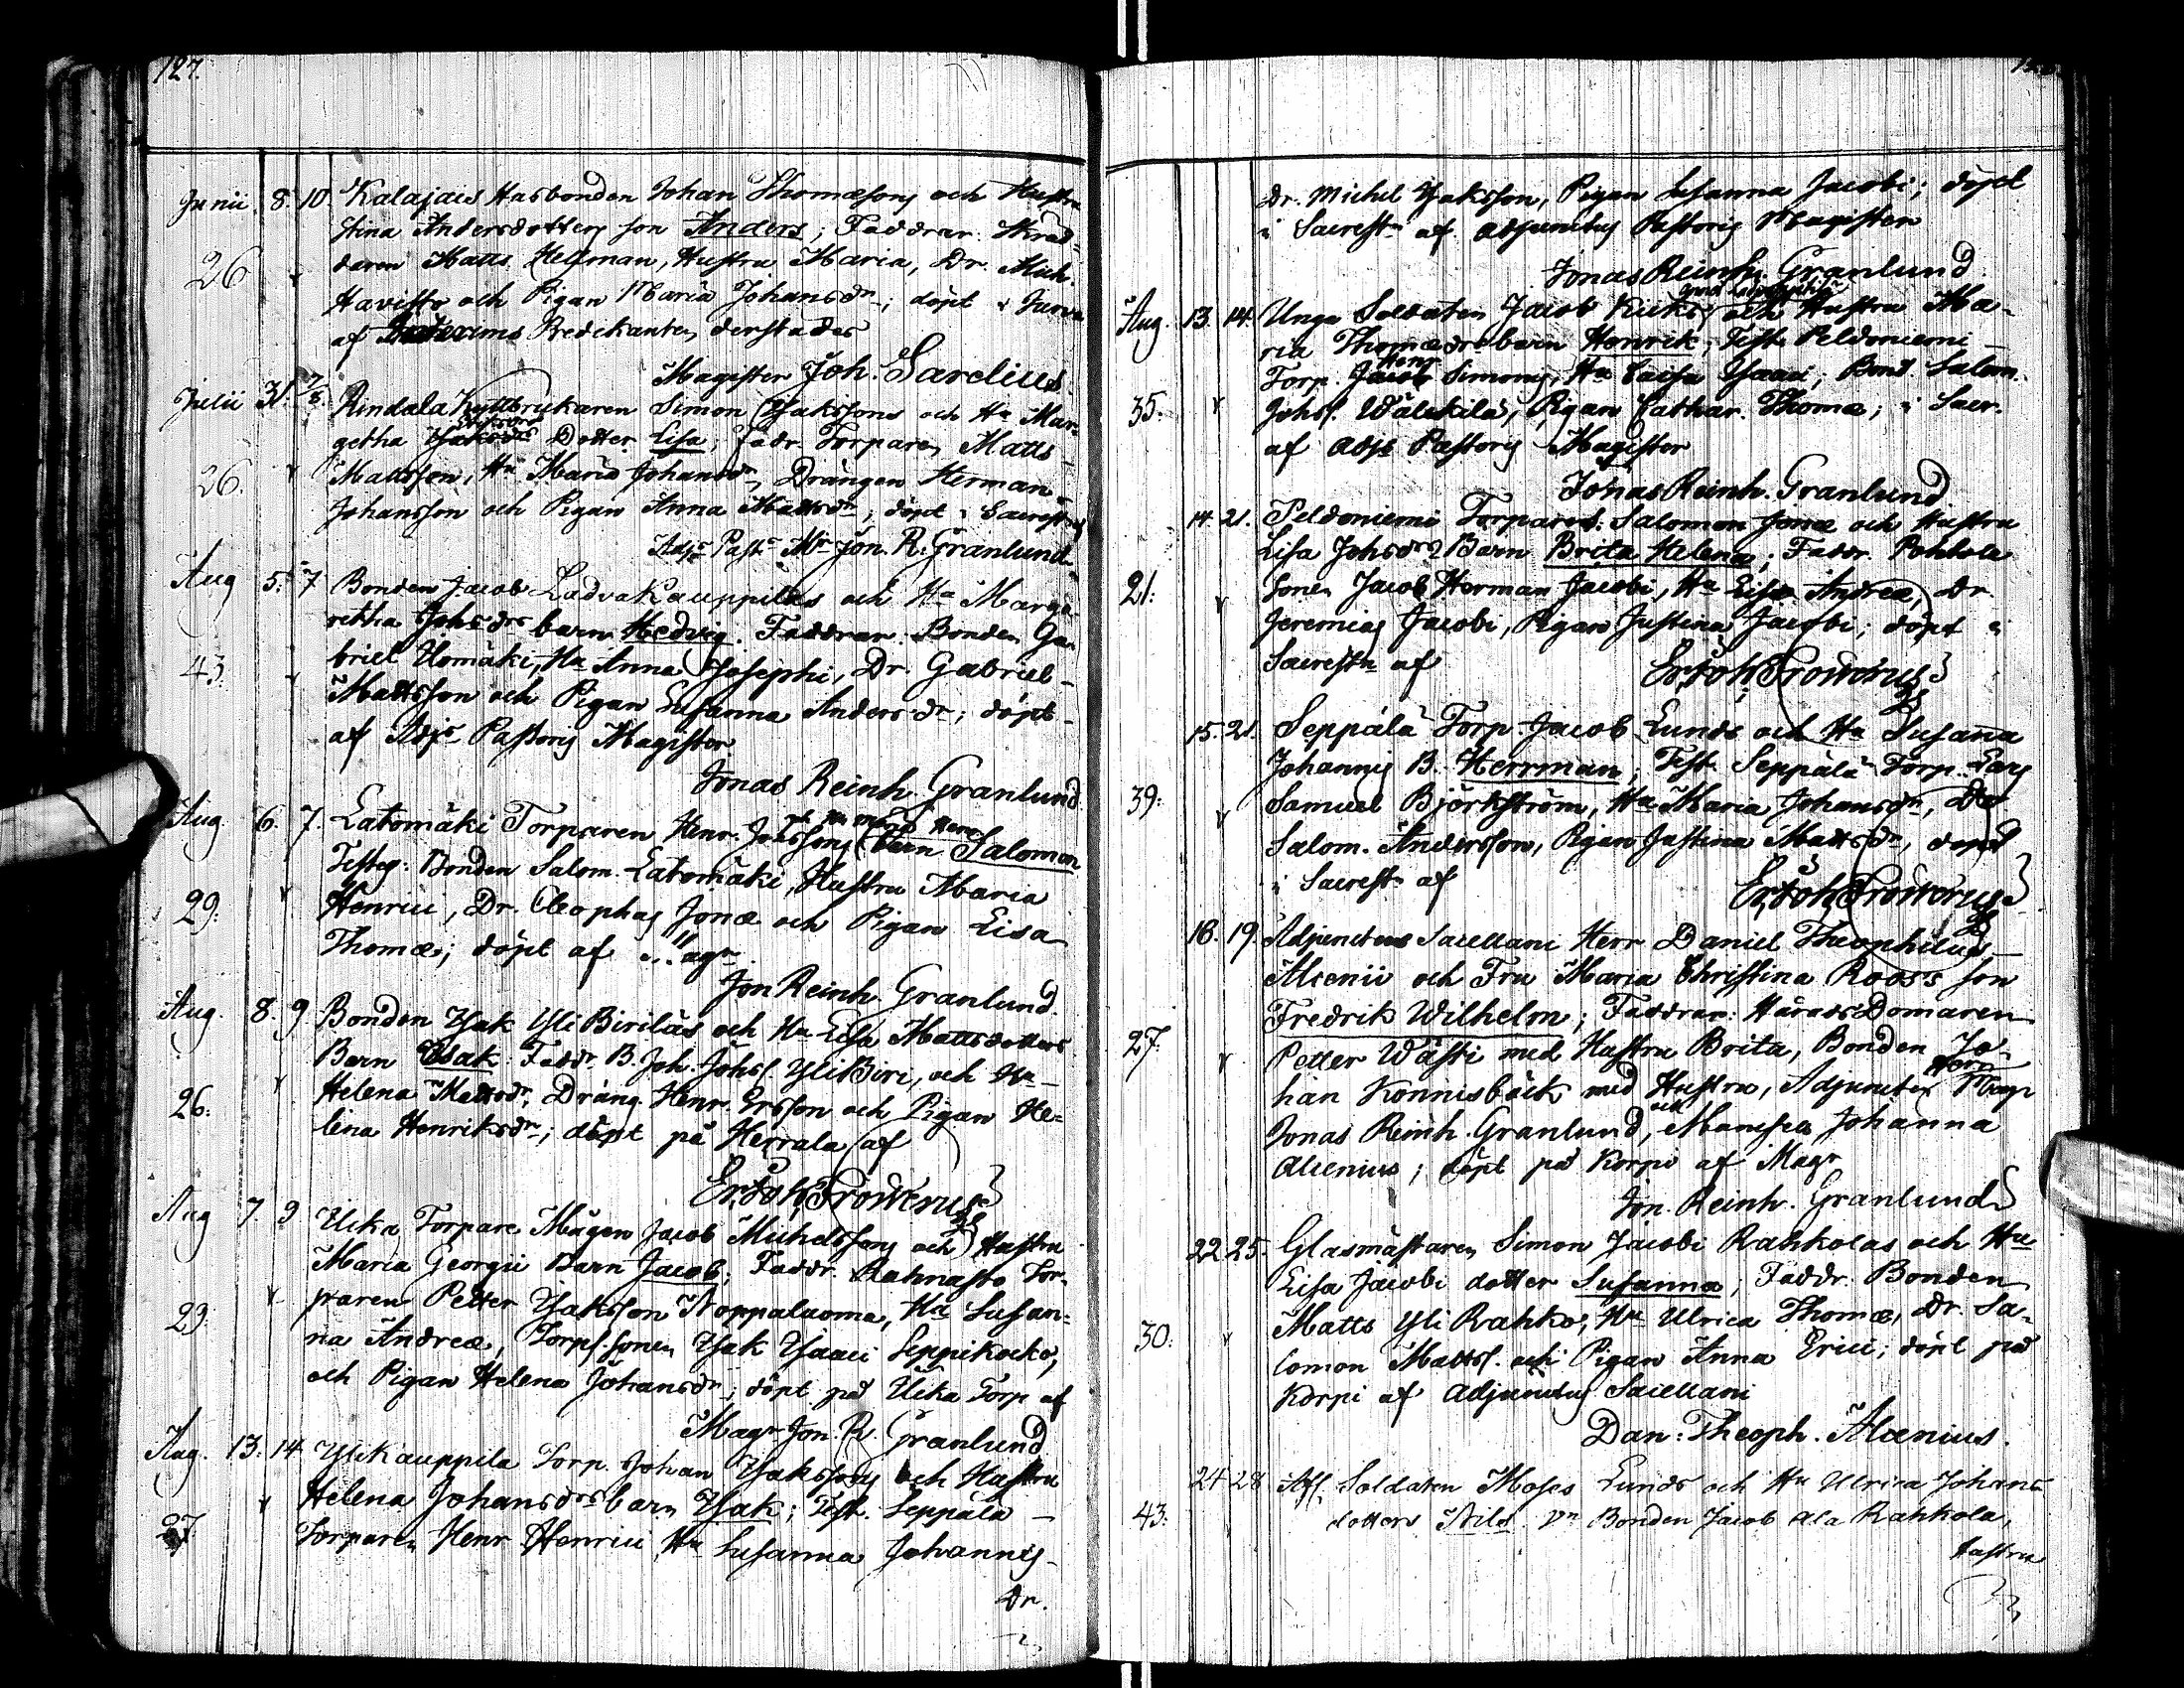 127.
Junii 8. 10. Kalajais Husbonden Johan Thomæsons och Hustru
Stina Andersdotters son Anders; Faddrar Skräd-
26 daren Matts Hellman, Hustru Maria, Dr. Mich.
Havisto och Pigan Maria Johansdr; döpt i Jurva
af Predikanten derstädes
Magister Joh. Sarelius.
Julii 31. 7/8. Rindala Hyttbrukaren Simon Isakssons och Ha Mar-
getha Dotter Lisa; Fadr. Torparen Matts
26. Mattsson, Ha Maria Johansdr, Drängen Herman
Johansson och Pigan Anna Mattsdr; döpt i Sacrest. af
Adjs Pasts Mr Jon. R. Granlund
Aug 5. 7 Bonden Jacob Ladvakauppilas och Ha Marga-
retha Johsdrs barn Hedvig. Faddrar: Bonden Ga-
43. briel Ha Anna Josephi, Dr. Gabriel
Mattsson och Pigan Susanna Andersdr; döpt
af Adjs Pastoris Magister
Jonas Reinh. Granlund
Aug. 6. 7. Latomäki Torparen Henr. Johssons barn Salomon
Testes: Bonden Salom. Latomäki, Hustru Maria
29: Henrici, Dr. Cleophas Jonæ och Pigan Lisa
Thomæ; döpt af Magr
Jon Reinh. Granlund.
Aug. 8. 9. Bonden Isak Yli Birilas och Ha Lisa Mattsdotters
Barn Isak. Faddr. B. Joh. Johss. YliBiri, och Ha
26: Helena Mattsdr, Dräng. Henr. Ersson och Pigan He-
lena Henriksdr; döpt på Herrala af
Er. Joh. Frosterus
Aug 7. 9 Ulka Torpare Mågen Jacob Michelssons och Hustru
Maria Georgii Barn Jacob; Faddr. Rahnasto Tor-
29: paren Petter Isaksson Noppalaoma, Ha Susan-
na Andreæ, Torps. sonen Isak Isaaci Seppikoko,
och Pigan Helena Johansdr; döpt på Ulka Torp af
Magr Jon. R. Granlund
Aug. 13. 14 Ylikauppila Torp. Johan Isakssons och Hustru
Helena Johansdrs barn Isak; Test. Seppälä
27 Torparen Henr. Henrici, Ha Susanna Johannis
Dr.
Dr. Michel Isaksson, Pigan Susanna Jacobi; döpt
i Sacrestn af Adjunctus Pastoris Magistern
Jonas Reinh. Granlund
Aug. 13. 14. Unga Soldaten Jacob Kucks och Hustru Ma-
ria Thomædrs barn Henrik; Test. Peldoniemi
Henr
Torp. Jacob Simonis, Ha Caisa Isaaci; Bond. Salom.
35. Johss. Wälikilä, Pigan Cathar. Thomæ; i Sacr.
af adjs Pastoris Magister
Jonas Reinh. Granlund
14. 21. Peldoniemi Torparen Salomon Jonæ och Hustru
Lisa Johsdrs Barn Brita Helena; Faddr. Pohhola
21: sonen Jacob Herman Jacobi, Ha Lisa Andreæ, Dr.
Jeremias Jacobi, Pigan Justina Jacobi; döpt i
Sacrestn af
Er. Joh. Frosterus
15. 21. Seppälä Torp. Jacob Lunds och Ha Susanna
Johannis B. Herrman; Test. Seppälä Torp. Lars
39: Samuel Björkström, Ha Maria Johansdr, Dr
Salom. Andersson, Pigan Justina Mattsdr, döpt
i Sacrestn af
Er. Joh. Frosterus
16. 19. Adjunctus Sacellani Herr Daniel Theophilus
Alcenii och Fru Maria Christina Rooss son
Fredrik Wilhelm; Faddrar: HäradsDomaren
27: Petter Wästi med Hustru Brita, Bonden Jo-
han Konnisbäck med Hustru, Adjuncten Herr Magr
Jonas Reinh. Granlund, och Mamsea Johanna
Alcenius; döpt på Korpi af Magr
Jon. Reinh. Granlund
22 25. Glasmästaren Simon Jacobi Rahkolas och Hu
Lisa Jacobi dotter Susanna; Faddr. Bonden
30: Matts Yli Rahko, Hu Ulrica Thomæ, Dr. Sa-
lomon Mattss. och Pigan Anna Erici; döpt på
Korpi af Adjunctus Sacellani
Dan. Theoph. Alcenius.
24 28 Soldaten Moses Lunds och Hu Ulrica Johans
43: dotters Nils Bonden Jacob Ala Rahkola,
Hustru